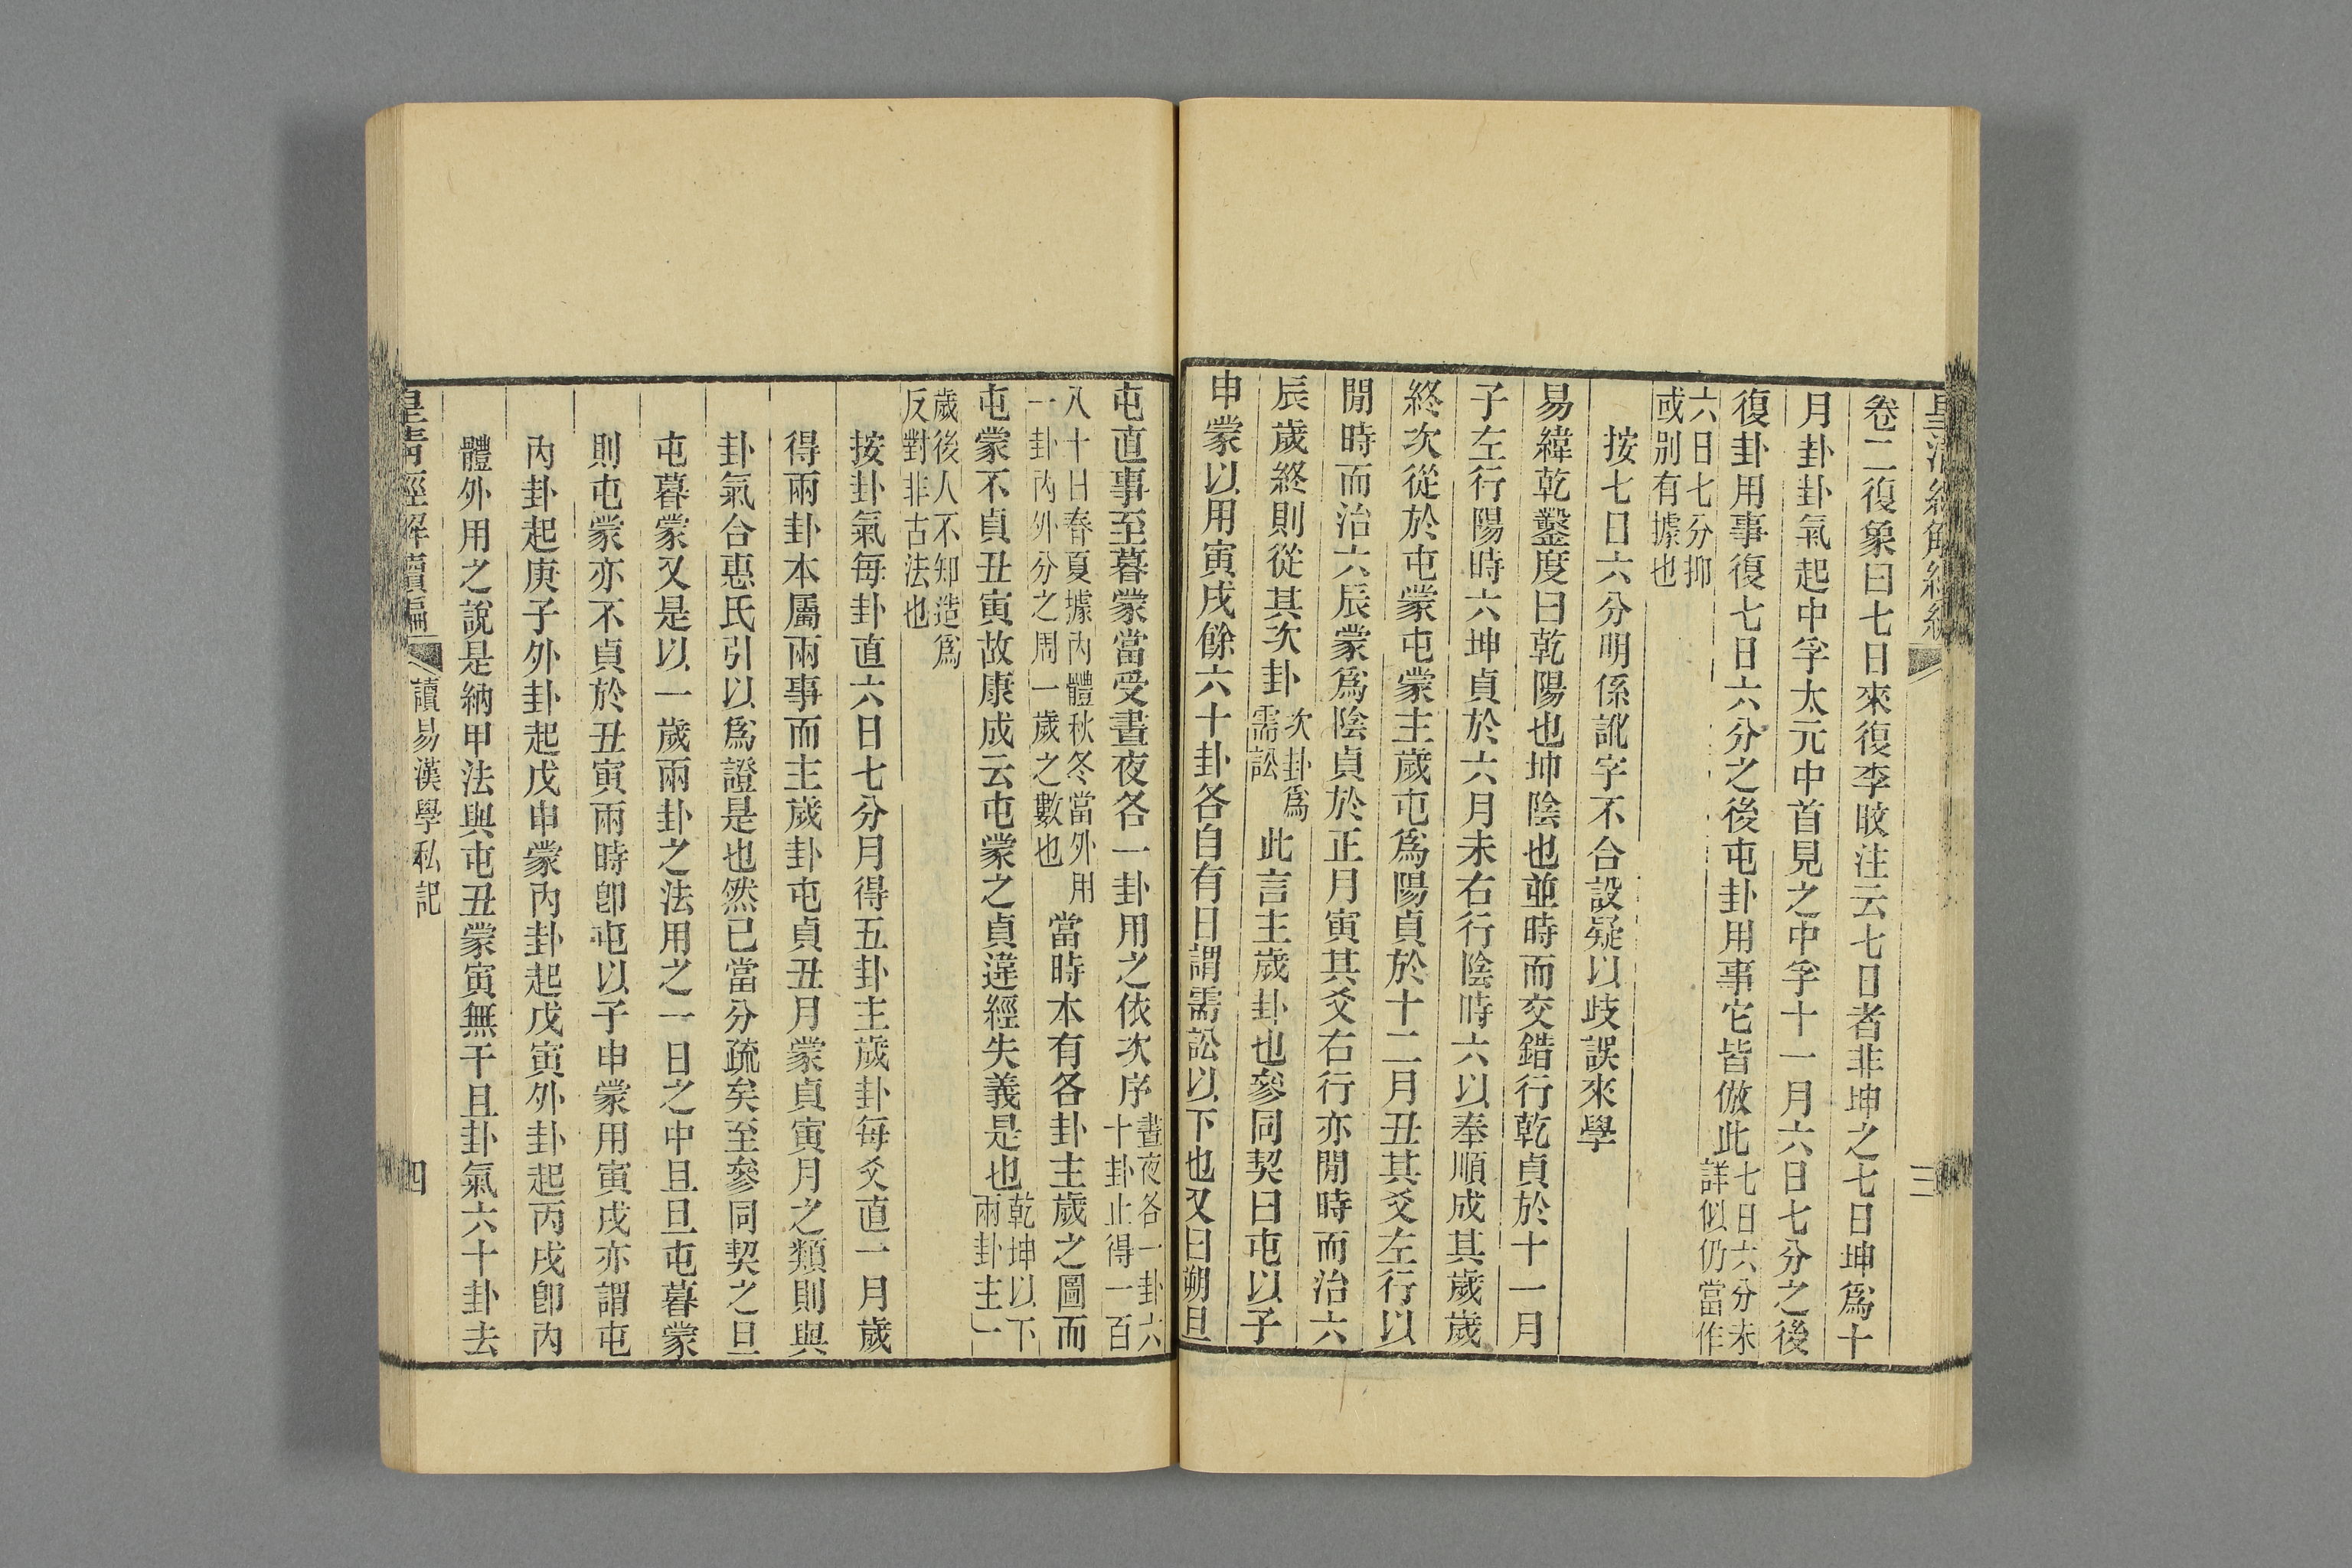 卷二復象曰七日來復李㪅注云七日者非坤之七日坤爲十
月卦卦氣起中孚太元中首見之中孚十一月六日七分之後
復卦用事復七日六分之後屯卦用事它皆倣此七日六分未詳似仍當作
六日七分抑或别有據也
按七日六分明係訛字不合設疑以歧誤來學
易緯乾鑿度曰乾陽也坤陰也並時而交錯行乾貞於十一月
子左行陽時六坤貞於六月未右行陰時六以奉順成其歲歲
終次從於屯蒙屯蒙主歲屯爲陽貞於十二月丑其爻左行以
閒時而治六辰蒙爲陰貞於正月寅其爻右行亦閒時而治六
辰歲終則從其次卦次卦爲需訟此言主歲卦也參同契曰屯以子
申蒙以用寅戌餘六十卦各自有日謂需訟以下也又曰朔旦
屯直事至暮蒙當受晝夜各一卦用之依次序晝夜各一卦六十卦止得一百
八十日春夏據内體秋冬當外用一卦内外分之周一歲之數也當時本有各卦主歲之圖而
屯蒙不貞丑寅故康成云屯蒙之貞違經失義是也乾坤以下兩卦主一
歲後人不知造爲反對非古法也
按卦氣每卦直六日七分月得五卦主歲卦每爻直一月歲
得兩卦本屬兩事而主歲卦屯貞丑月蒙貞寅月之類則與
卦氣合惠氏引以爲證是也然已當分疏矣至參同契之旦
屯暮蒙又是以一歲兩卦之法用之一日之中且旦屯暮蒙
則屯蒙亦不貞於丑寅兩時卽屯以子申蒙用寅戌亦謂屯
内卦起庚子外卦起戊申蒙内卦起戊寅外卦起丙戌卽内
體外用之說是納甲法與屯丑蒙寅無干且卦氣六十卦去
皇清經解續編
讀易漢學私記
四